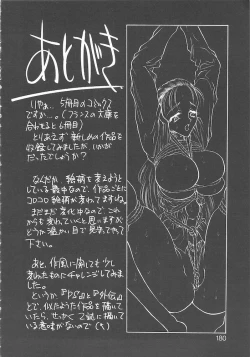 あとがき
いやぁ…5冊目のコミックス
ですか…。(フランスの文庫を
合わせると6冊目)
とりあえず新しめの作品を
収録してみましたが、いかが
だったでしょうか?
なんだか絵柄を変えよう
としている最中なので、作品ごとに
コロコロ絵柄が変わってますね。
まだまだ変化中なので、これ
からも変わっていくと思いますが
どうか温かい目で見守ってやって
下さい。
あと、作風に関しても少し
変わったものにチャレンジしてみま
した。
というか
とで、似たような作品を描いて
いたら、せっかく
意味がないので(笑)
180